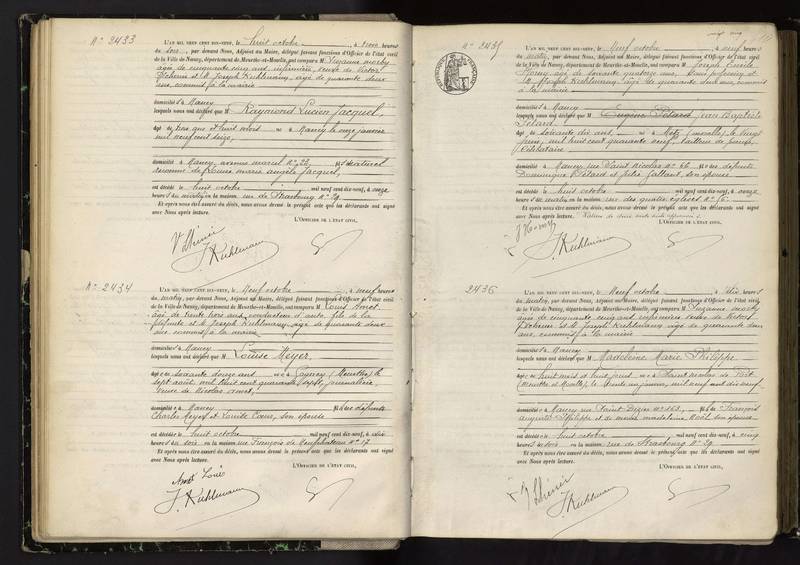 N° 2433
L'AN MIL NEUF CENT DIX-NEUF, le huit octobre, à trois heures
du soir, par devant Nous, Adjoint au Maire, délégué faisant fonctions d'Officier de l'état civil
de la Ville de Nancy, département de Meurthe-et-Moselle, ont comparu M Suzanne
âgée de cinquante cinq ans infirmière, veuve de Victor
et M. Joseph Kuhlmann, âgé de quarante deux
ans, commis à la mairie
domicilié à Nancy
lesquels nous ont déclaré que M Raymond Lucien Jacquel,
âgé de trois ans et huit mois né à Nancy le onze janvier
mil neuf cent seize,
domicilié à Nancy, avenue N° 22, fils naturel
de Louise marie angèle Jacquel,
est décédé le huit octobre mil neuf cent dix-neuf, à onze
heures du matin, en la maison rue de Strasbourg N° 29
Et après nous être assuré du décès, nous avons dressé le présent acte que les déclarants ont signé
avec Nous après lecture.
L'OFFICIER DE L'ÉTAT CIVIL,
J. Kuhlmann
N° 2434
L'AN MIL NEUF CENT DIX-NEUF, le Neuf octobre, à neuf heures
du matin, par devant Nous, Adjoint au Maire, délégué faisant fonctions d'Officier de l'état civil
de la Ville de Nancy, département de Meurthe-et-Moselle, ont comparu M Louis
âgé de trente trois ans, conducteur d'auto, fils de la
défunte et M. Joseph Kuhlmann, âgé de quarante deux
ans, commis à la mairie
domicilié à Nancy
lesquels nous ont déclaré que M Louise Meyer,
âgée de soixante douze ans née à Lagney (Meurthe) le
sept août, mil huit cent quarante sept, journalière
veuve de Nicolas
domiciliée à Nancy fille des défunts
Charles Meyer et son épouse
est décédée le huit octobre mil neuf cent dix-neuf, à dix
heures du soir en la maison rue François de Neufchâteau N° 17
Et après nous être assuré du décès, nous avons dressé le présent acte que les déclarants ont signé
avec Nous après lecture.
L'OFFICIER DE L'ÉTAT CIVIL,
J. Kuhlmann
N° 2435
L'AN MIL NEUF CENT DIX-NEUF, le Neuf octobre, à neuf heures
du matin, par devant Nous, Adjoint au Maire, délégué faisant fonctions d'Officier de l'état civil
de la Ville de Nancy, département de Meurthe-et-Moselle, ont comparu M Joseph Émile
âgé de soixante quatorze ans, sans profession et
M. Joseph Kuhlmann, âgé de quarante deux ans, commis
à la mairie
domicilié à Nancy
lesquels nous ont déclaré que M Eugène Jean Baptiste
Pélard
âgé de soixante dix ans né à Metz (moselle) le vingt
juin, mil huit cent quarante neuf, tailleur de
célibataire
domicilié à Nancy rue Saint Nicolas N° 66 fils des défunts
Dominique Pélard et son épouse
est décédé le huit octobre mil neuf cent dix-neuf, à onze
heures du matin, en la maison rue des quatre églises N° 6
Et après nous être assuré du décès, nous avons dressé le présent acte que les déclarants ont signé
avec Nous après lecture.
L'OFFICIER DE L'ÉTAT CIVIL,
J. Kuhlmann
2436
L'AN MIL NEUF CENT DIX-NEUF, le Neuf octobre, à dix heures
du matin, par devant Nous, Adjoint au Maire, délégué faisant fonctions d'Officier de l'état civil
de la Ville de Nancy, département de Meurthe-et-Moselle, ont comparu M Suzanne
âgée de cinquante cinq ans infirmière veuve de Victor
et M. Joseph Kuhlmann âgé de quarante deux
ans, commis à la mairie
domicilié à Nancy
lesquels nous ont déclaré que M Madeleine Marie Philippe
âgée de huit mois et huit jours née à Saint Nicolas de Port
(Meurthe et Moselle), le trente un janvier, mil neuf cent dix neuf
domiciliée à Nancy rue Saint Dizier N° 163, fille de François
auguste Philippe et de marie madeleine Noël son épouse
est décédée le huit octobre mil neuf cent dix-neuf, à cinq
heures du soir en la maison rue de Strasbourg N° 29
Et après nous être assuré du décès, nous avons dressé le présent acte que les déclarants ont signé
avec Nous après lecture.
L'OFFICIER DE L'ÉTAT CIVIL,
J. Kuhlmann